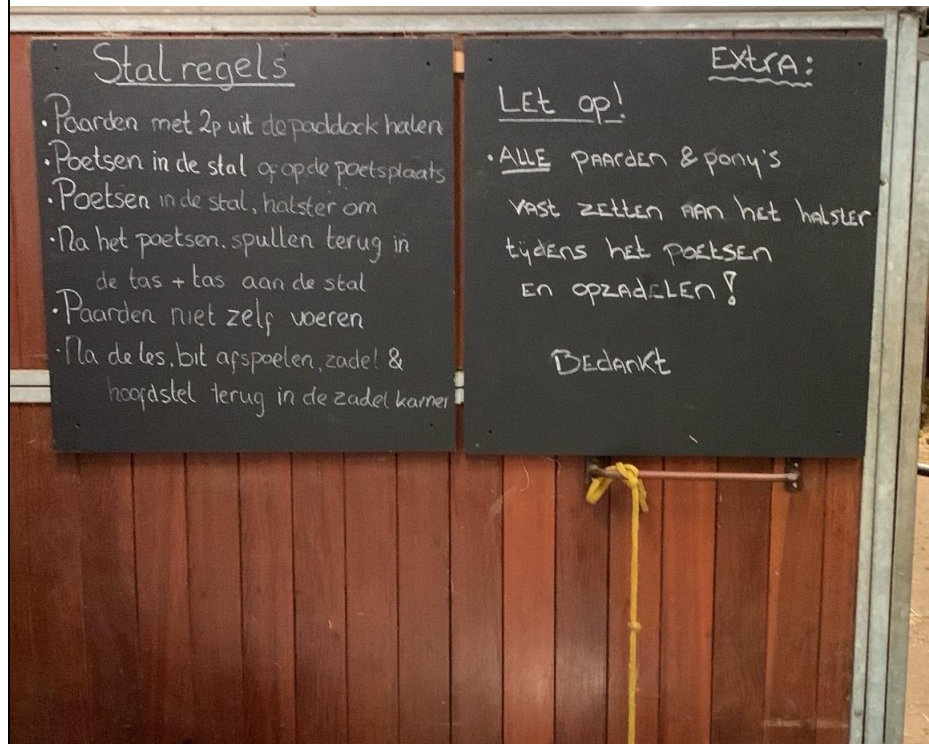 Stal regels
• Paarden met 2p uit de paddock halen
• Poetsen in de stal of op de poetsplaats
• Poetsen in de stal, halster om
• Na het poetsen, spullen terug in
de tas + tas aan de stal
• Paarden niet zelf voeren
• Na de les, bit afspoelen, zadel &
hoofdstel terug in de zadel kamer
Extra:
Let op!
• ALLE paarden & pony's
vast zetten aan het halster
tijdens het poetsen
en opzadelen!
Bedankt